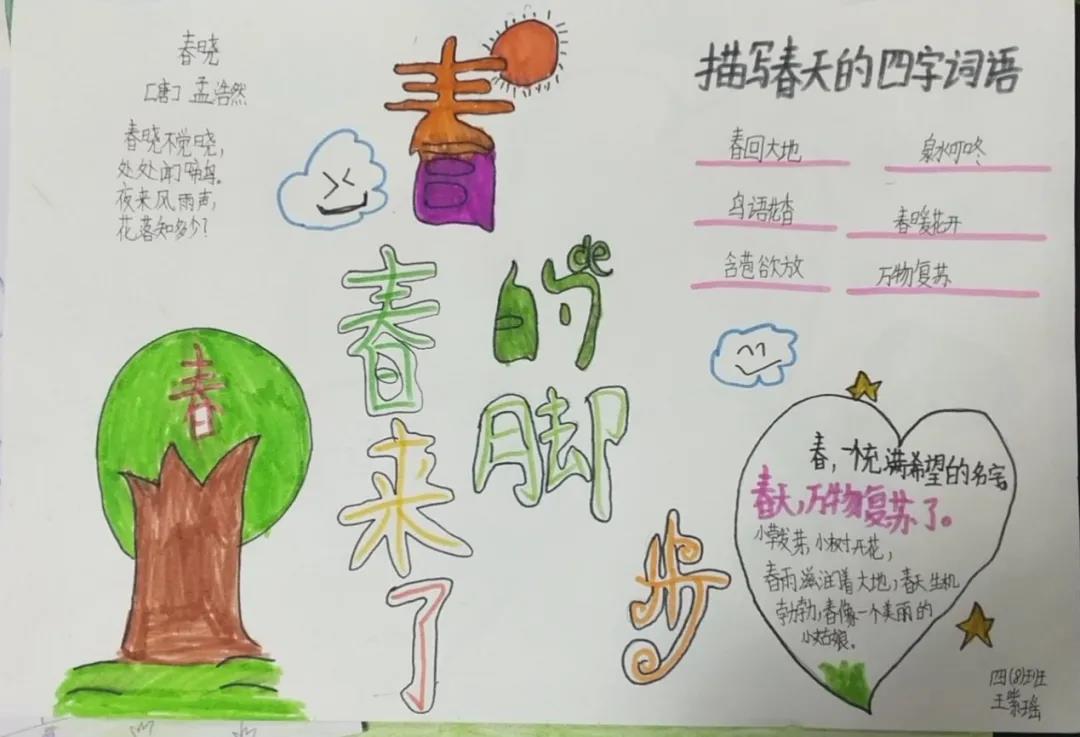 春晓
[唐] 孟浩然
春晓不觉晓，
处处闻啼鸟。
夜来风雨声，
花落知多少？
春
的 de
脚
步
春
来
了
春
描写春天的四字词语
春回大地 泉水叮咚
鸟语花香 春暖花开
含苞欲放 万物复苏
春，一个充满希望的名字
春天，万物复苏了。
小草发芽，小树开花，
春雨滋润着大地，春天生机
勃勃，春像一个美丽的
小姑娘。
四(8)班
王紫瑶